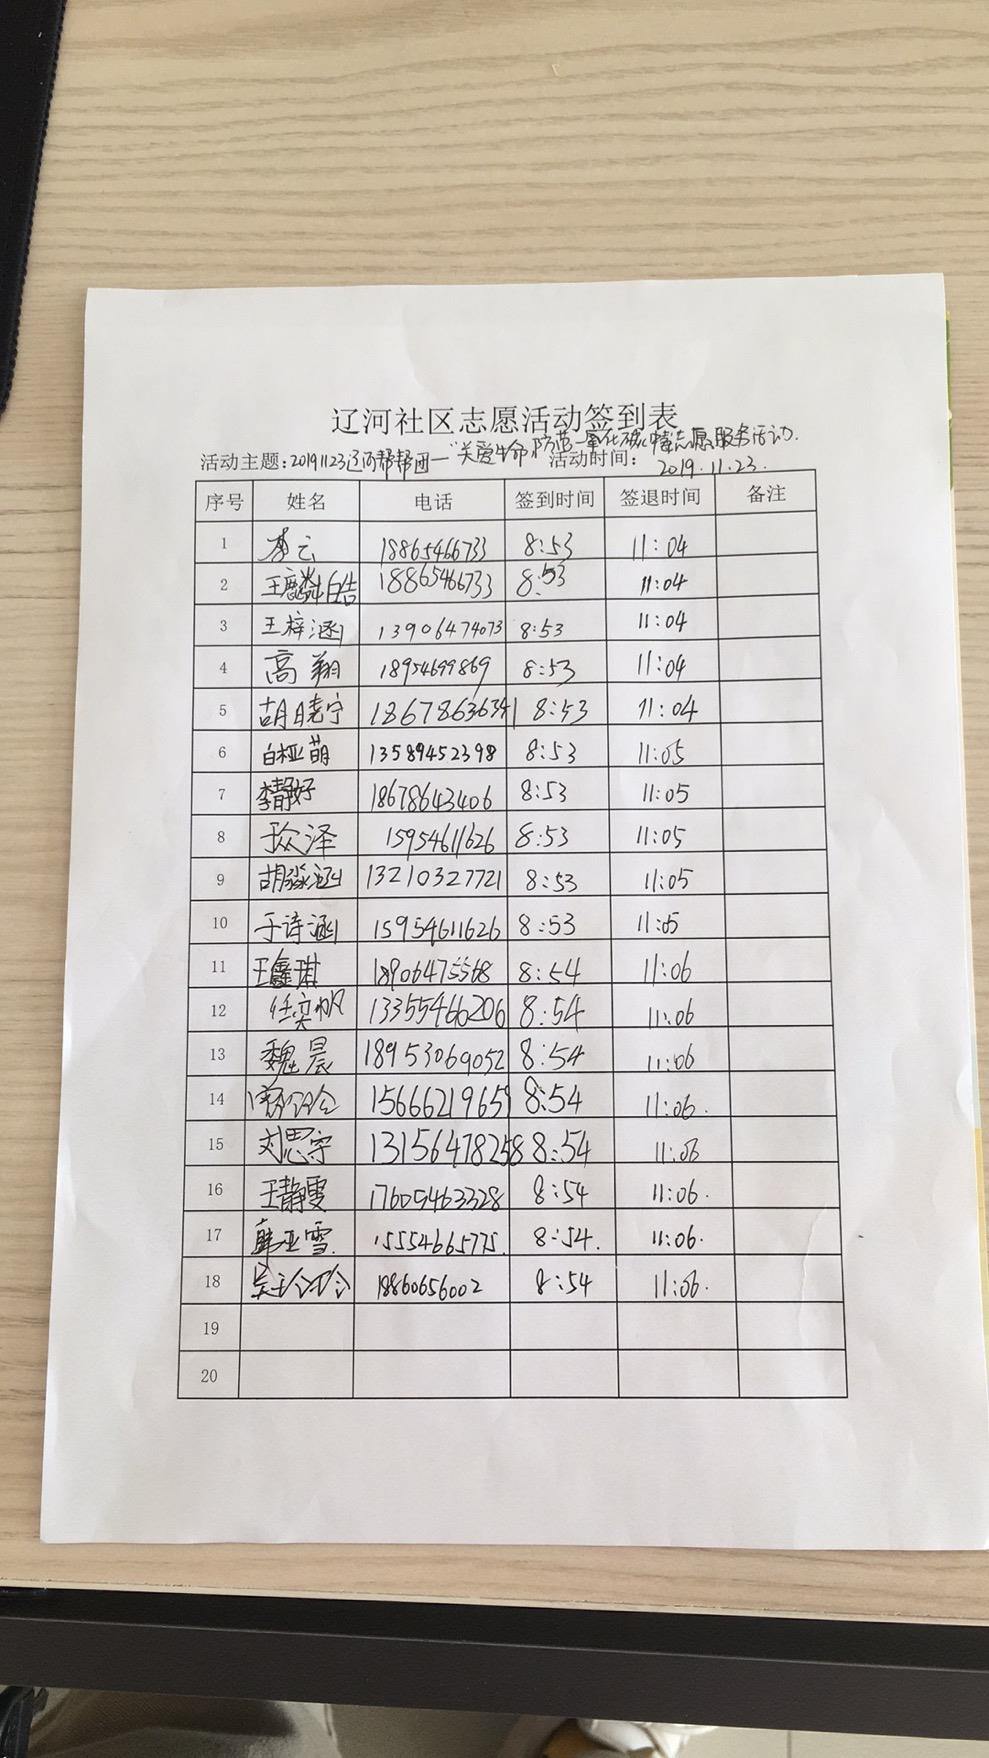 辽河社区志愿活动签到表
活动主题:20191123辽河帮帮团—"关爱生命 防范一氧化碳中毒志愿服务活动.
活动时间: 2019.11.23.
序号 姓名 电话 签到时间 签退时间 备注
1 李云 18865466733 8:53 11:04
2 王麟皓 18865466733 8:53 11:04
3 王梓涵 13906474073 8:53 11:04
4 高翔 18954699869 8:53 11:04
5 胡晓宁 18678636341 8:53 11:04
6 白桠萌 13589452398 8:53 11:05
7 李静好 18678643406 8:53 11:05
8 于众泽 15954611626 8:53 11:05
9 胡淼涵 13210327721 8:53 11:05
10 于诗涵 15954611626 8:53 11:05
11 王鑫琪 18906475568 8:54 11:06
12 任奕帆 13355466206 8:54 11:06
13 魏晨 18953069052 8:54 11:06
14 15666219659 8:54 11:06.
15 刘思宇 13156478258 8:54 11:06
16 王静雯 17605463328 8:54 11:06.
17 薛亚雪. 15554665775. 8:54. 11:06.
18 吴玲玲 18860656002 8:54 11:06.
19
20